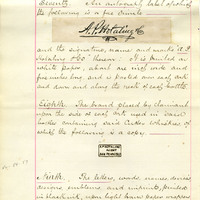 Seventh. An autograph label of which
the following is a fac simile
A. P. Hotaling & Co
and the signature, name and words "A. P.
Hotaling & Co" thereon. It is printed on
white paper, about one inch wide and
five inches long, and is pasted over each cork
and down and along the neck of each bottle.
Eighth. The brand placed by claimant
upon the side of each cork used in said
bottles containing said Cutter whiskies of
which the following is a copy.
A.P. HOTALING
SAN FRANCISCO
Ninth. The letters, words, names, devices,
and imprints, printed
in black ink, upon light brown paper wrappers